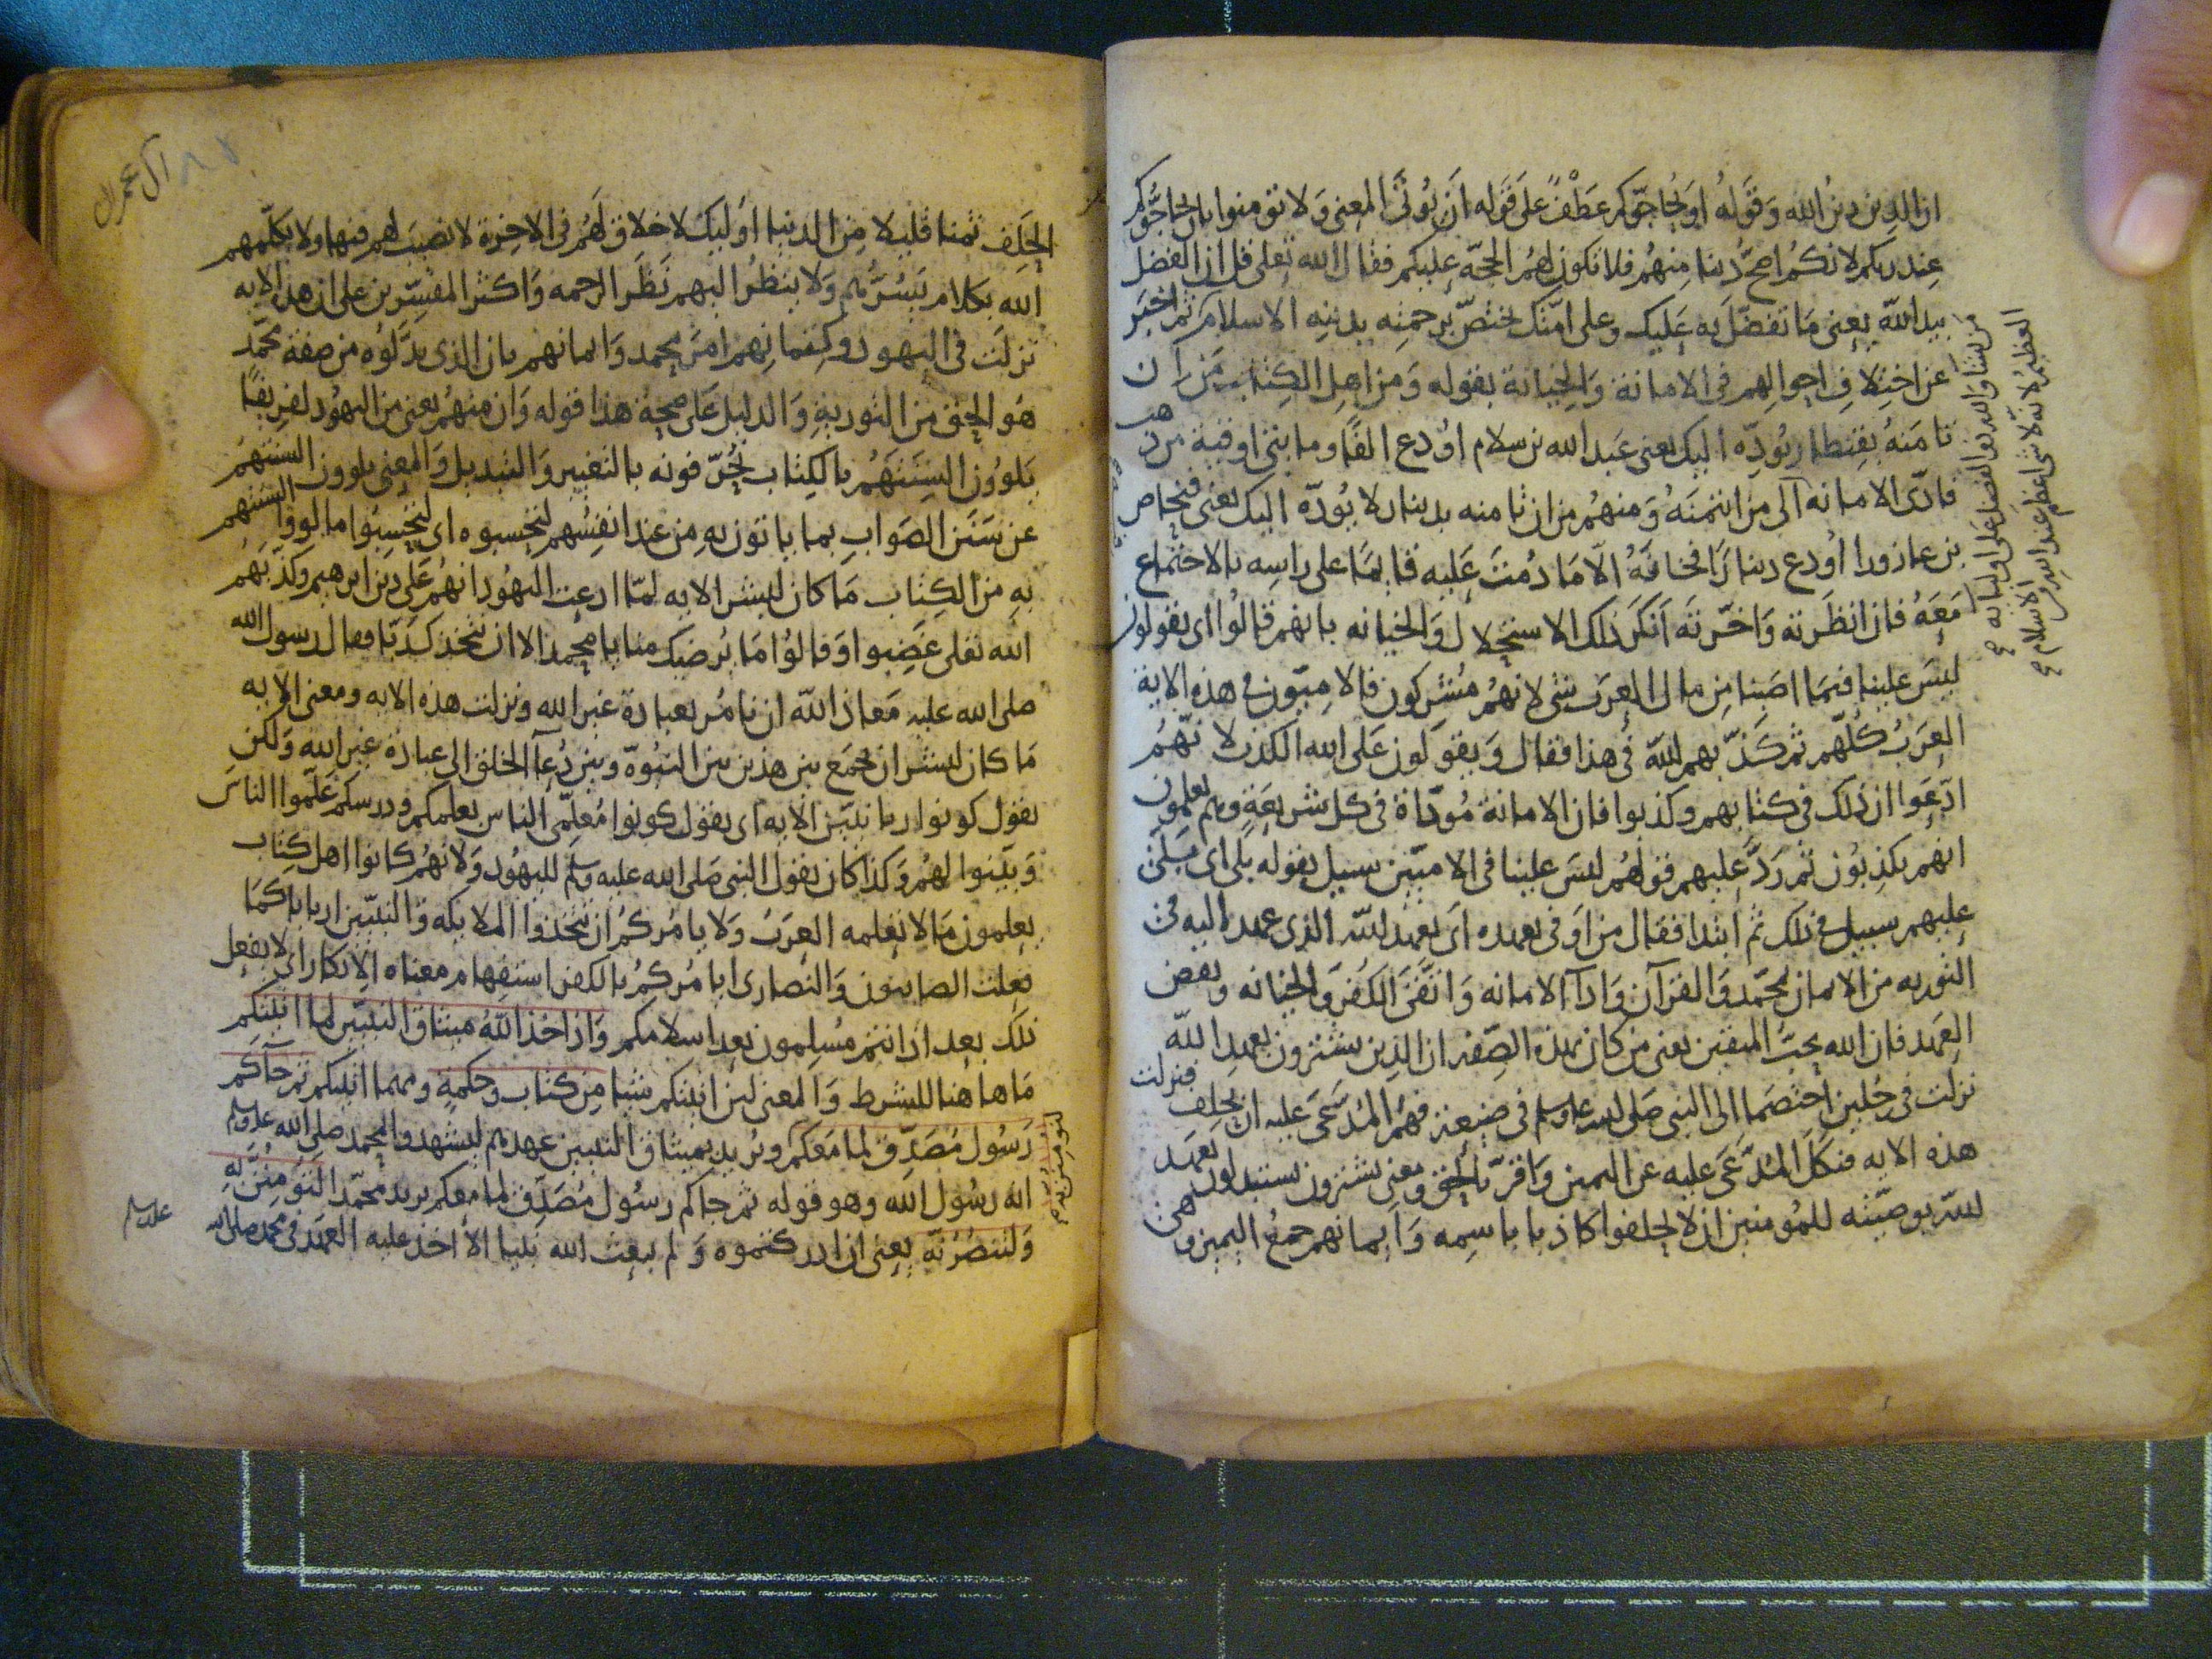 ان الدين دين الله وقوله او يحاجوكم عطف على قوله ان يوتى المعنى ولا تومنوا بان يحاجوكم
عند ربكم لانكم اصح دينا منهم فلا تكون لهم الحجة عليكم فقال الله تعلى قل ان الفضل
بيد الله يعنى ما تفضل به عليك وعلى امتك يختص برحمته بدينه الاسلام ثم اخبر
عن اختلاف احوالهم فى الامانة والخيانة بقوله ومن اهل الكتاب من ان
تامنه بقنطار يوده اليك يعنى عبد الله بن سلام اودع الفا وما يتى اوقية من ذهب
فادى الامانه الى من ائتمنه ومنهم من ان تامنه بدينار لا يوده اليك يعنى فنحاص
بن عازورا اودع دينارا فخانه الا ما دمت عليه قايما على راسه بالاجتماع
معه فان انظرته واخرته انكر ذلك الاستحلال والخيانه بانهم قالوا اى يقولون
ليس علينا فيما اصبنا من مال العرب شى لانهم مشركون فالاميون فى هذه الاية
العرب كلهم ثم كذبهم الله فى هذا فقال ويقولون على الله الكذب لانهم
ادعوا ان ذلك فى كتابهم وكذبوا فان الامانة موداة فى كل شريعة وهم يعلمون
انهم يكذبون ثم رد عليهم قولهم ليس علينا فى الاميين سبيل بقوله بلى اى بلى
عليهم سبيل فى ذلك ثم ابتدا فقال من اوفى بعهده اى بعهد الله الذى عهد اليه فى
التوريه من الايمان بمحمد والقران وادا الامانه واتقى الكفر والخيانه ونقض
العهد فان الله يحب المتقين يعنى من كان بهذه الصفه ان الذين يشترون بعهد الله
نزلت فى رجلين اختصما الى النبى صلى الله عليه وسلم فى ضيعة فهم المدعى عليه ان يحلف فنزلت
هذه الايه فنكل المدعى عليه عن اليمين واقر بالحق ومعنى يشترون يستبدلون بعهد
لله بوصيته للمومنين ان لا يحلفوا كاذبا باسمه وايمانهم جمع اليمين وهى
من يشا والله ذو الفضل على اوليائه
العظيم لانه لا شى اعظم عند الله من الاسلام
ال عمران
الحلف ثمنا قليلا من الدنيا اوليك لا خلاق لهم فى الاخرة لا نصيب لهم فيها ولا يكلمهم
الله بكلام يسرهم ولا ينظر اليهم نظر الرحمه واكثر المفسرين على ان هذه الايه
نزلت فى اليهود وكتمانهم امر محمد وايمانهم بان الذى بدلوه من صفة محمد
هو الحق من التورية والدليل على صحة هذا قوله وان منهم يعنى من اليهود لفريقا
يلوون السنتهم بالكتاب يحرفونه بالتغيير والتبديل والمعنى يلوون السنتهم
عن سنن الصواب بما ياتون به من عند انفسهم لتحسبوه اى لتحسبوا ما لووا السنتهم
به من الكتاب ما كان لبشر الايه لما ادعت اليهود انهم على دين ابرهيم وكذبهم
الله تعلى غضبوا وقالوا ما يرضيك منا يا محمد الا ان نتخذك ربا فقال رسول الله
صلى الله عليه معاذ الله ان نامر بعبادة غير الله ونزلت هذه الايه ومعنى الايه
ما كان لبشر ان يجمع بين هذين بين النبوة وبين دعا الخلق الى عبادة غير الله ولكن
يقول كونوا ربانيين الايه اى يقول كونوا معلمى الناس بعلمكم ودرسكم علموا الناس
وبينوا لهم وكذا كان يقول النبى صلى الله عليه وسلم لليهود ولانهم كانوا اهل كتاب
يعلمون ما لا يعلمه العرب ولا يامركم ان تتخذوا الملايكه والنبيين اربابا كما
فعلت الصابئون والنصارى ايامركم بالكفر استفهام معناه الانكار اى لا يفعل
ذلك بعد اذ انتم مسلمون بعد اسلامكم واذ اخذ الله ميثاق النبيين لما اتيتكم
ما هاهنا للشرط والمعنى لين اتيتكم شيا من كتاب وحكمة ومهما اتيتكم ثم جاكم
رسول مصدق لما معكم ويريد بميثاق النبيين عهدهم ليشهدوا لمحمد صلى الله عليه وسلم
انه رسول الله وهو قوله ثم جاكم رسول مصدق لما معكم يريد محمدا لتومنن به
ولتنصرنه يعنى ان ادركتموه ولم يبعث الله نبيا الا اخذ عليه العهد فى محمد صلى الله
عليه وسلم